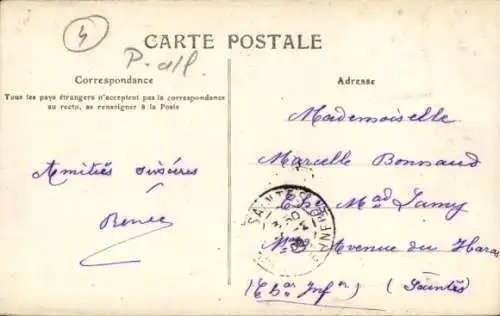 4
P-all
CARTE POSTALE
Correspondance
Tous les pays étrangers n'acceptent pas la correspondance
au recto, se renseigner à la Poste
Amitiés sincères
Renée
Adresse
Mademoiselle
Marcelle Bonnaud
Chez Mad Lamy
Avenue du Haras
(Chte Infre) (Saintes)
SAINTES